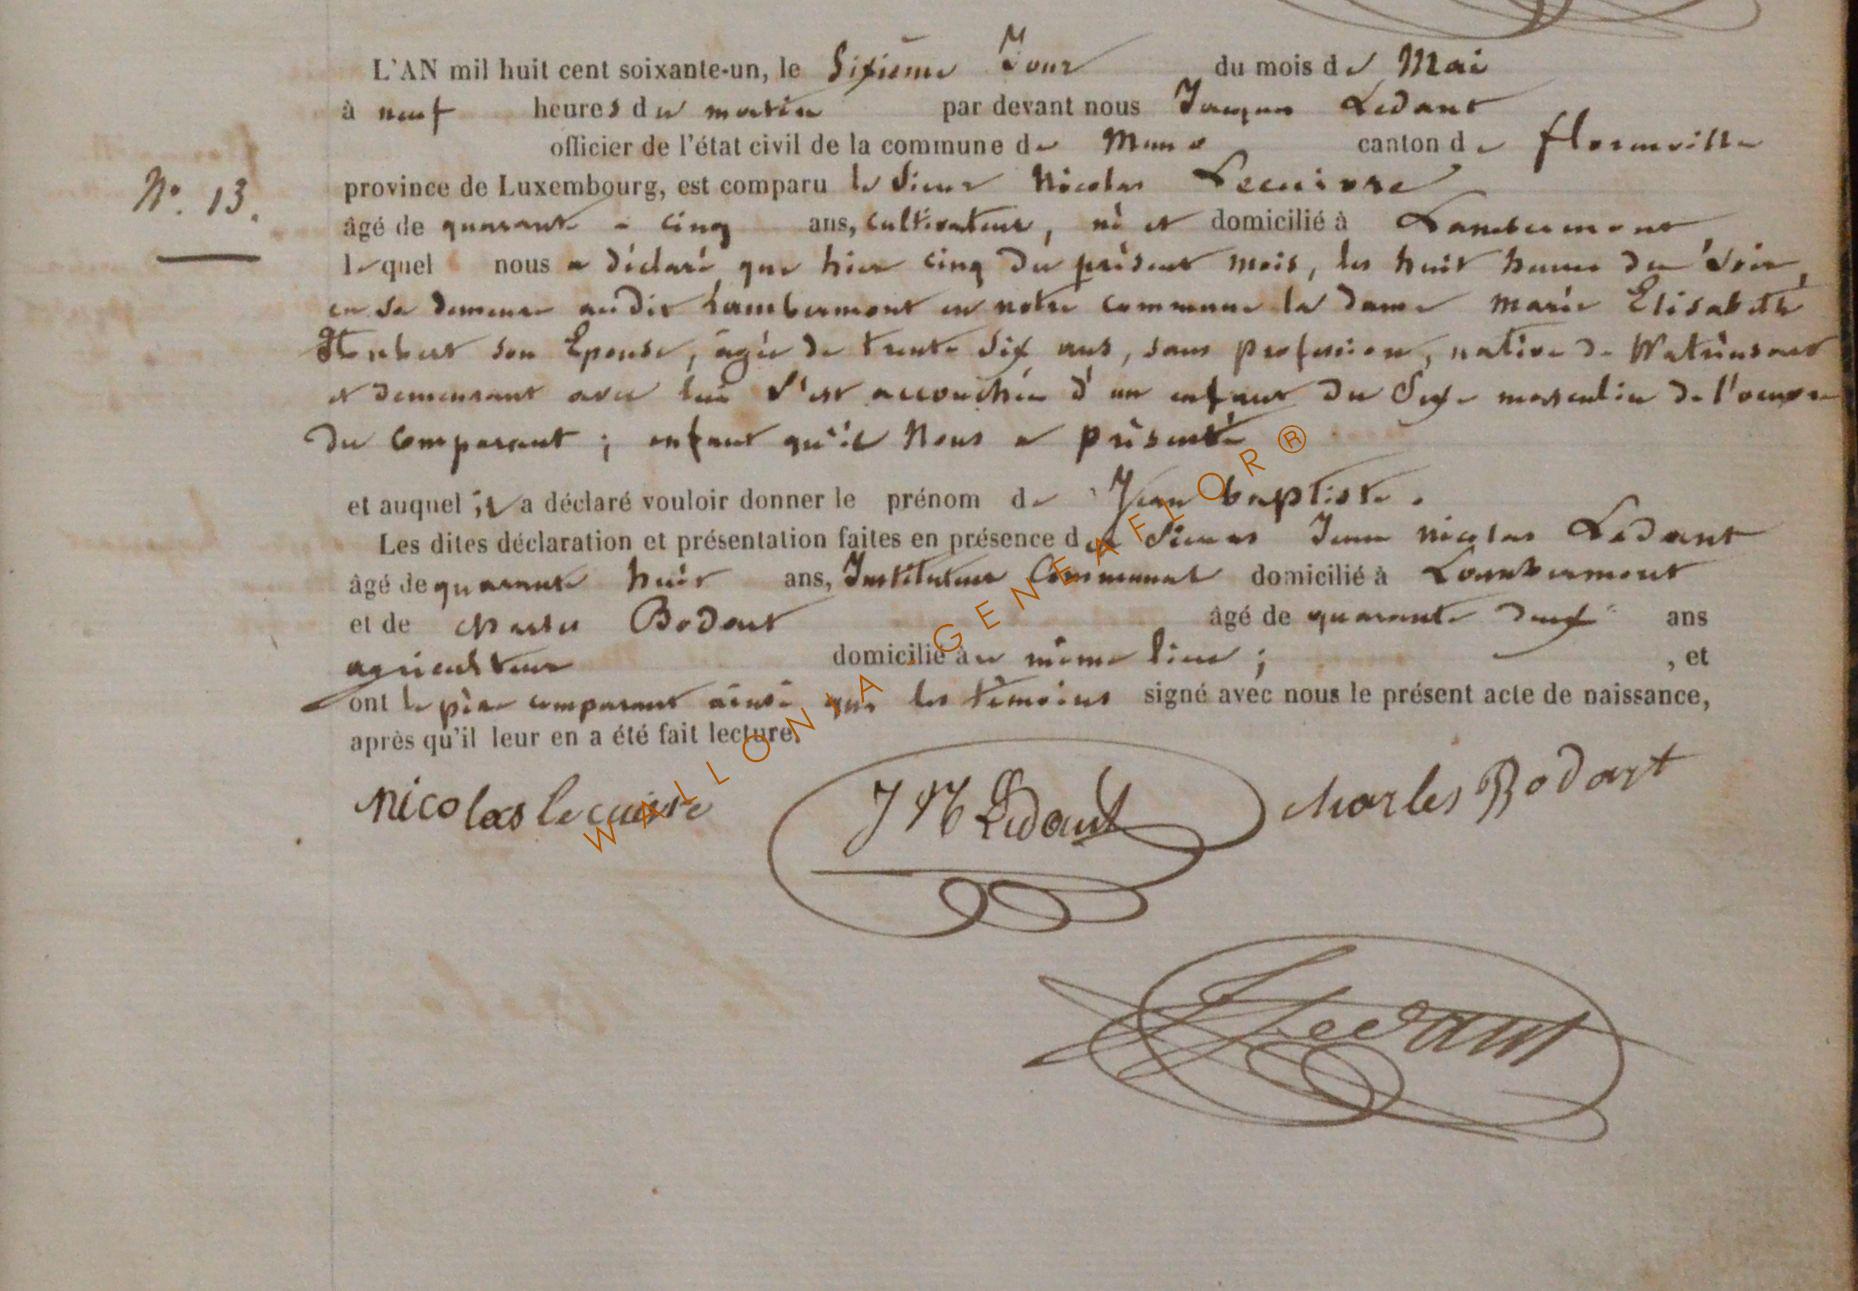 L'AN mil huit cent soixante-un, le Sixième Jour du mois de Mai
à neuf heures du matin par devant nous Jacques Ledant
officier de l'état civil de la commune de Muno canton de florenville
N°. 13.
province de Luxembourg, est comparu le Sieur Nicolas Lecuivre
âgé de quarante-cinq ans, cultivateur, né et domicilié à Lambermont
lequel nous a déclaré que hier cinq du présent mois, les huit heures du soir,
en sa demeure audit Lambermont en notre commune la dame Marie Elisabeth
son Epouse, agée de trente six ans, sans profession, native de Watrinsart
et demeurant avec lui s'est accouchée d'un enfant du Sexe masculin de l'oeuvre
du Comparant ; enfant qu'il Nous a présenté
et auquel il a déclaré vouloir donner le prénom de Jean baptiste.
Les dites déclaration et présentation faites en présence des Sieurs Jean Nicolas Ledant
âgé de quarante huit ans, Instituteur Communal domicilié à Lambermont
et de charles Bodart âgé de quarante deux ans
agriculteur domicilié au même lieu ; , et
ont le père comparant ainsi que les témoins signé avec nous le présent acte de naissance,
après qu'il leur en a été fait lecture.
Nicolas lecuivre J N Ledant charles Bodart
J Ledant
WALLONIA GENEAFLOR®